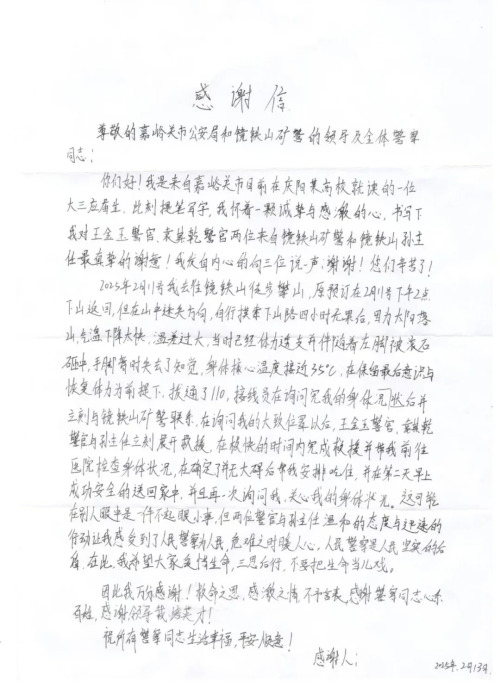 感谢信
尊敬的嘉峪关市公安局和镜铁山矿警的领导及全体警察
同志：
你们好！我是来自嘉峪关市目前在庆阳某高校就读的一位
大三应届生，此刻提笔写字，我怀着一颗诚挚与感激的心，书写下
我对王金玉警官、袁其乾警官两位来自镜铁山矿警和镜铁山孙主
任最真挚的谢意！我发自内心的向三位说一声：谢谢！您们辛苦了！
2025年2月11号我去往镜铁山徒步攀山，原预订在2月11号下午2点
下山返回，但在山中迷失方向，自行摸索下山路四小时无果后，因为太阳落
山，气温下降太快，温差过大，当时已经体力透支并伴随着左脚被滚石
砸中，手脚暂时失去了知觉，身体核心温度接近35℃，在保留最后意识与
恢复体力为前提下，拨通了110，接线员在询问完我的身体况状后并
立刻与镜铁山矿警联系，在询问我的大致位置以后，王金玉警官、袁其乾
警官与孙主任立刻展开救援，在极快的时间内完成救援并带我前往
医院检查身体状况，在确定了并无大碍后帮我安排吃住，并在第二天早上
成功安全的送回家中，并且再一次询问我、关心我的身体状况。这可能
在别人眼中是一件不起眼小事，但两位警官与孙主任温和的态度与迅速的
行动让我感受到了人民警察为人民，危难之时暖人心，人民警察是人民坚实的后
盾，在此，我希望大家爱惜生命，三思后行，不要把生命当儿戏。
因此我万分感谢！救命之恩，感激之情不予言表，感谢警察同志心系
百姓，感谢领导栽培英才！
祝所有警察同志生活幸福，平安顺意！
感谢人：
2025年2月13日